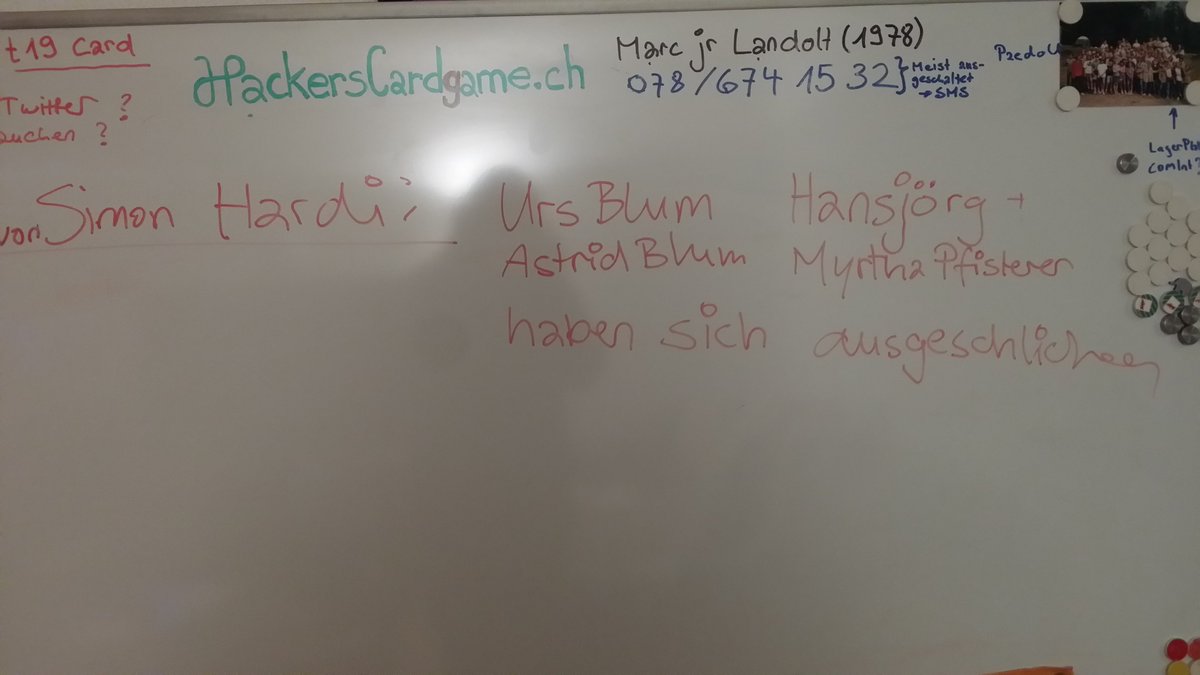 t19 Card
HackersCardgame.ch
Marc jr Landolt (1978)
078/674 15 32 } Meist aus-
geschaltet
→ SMS
Twitter ?
suchen ?
von Simon Hardi:
Urs Blum Hansjörg +
Astrid Blum Myrtha Pfisterer
haben sich ausgeschlichen